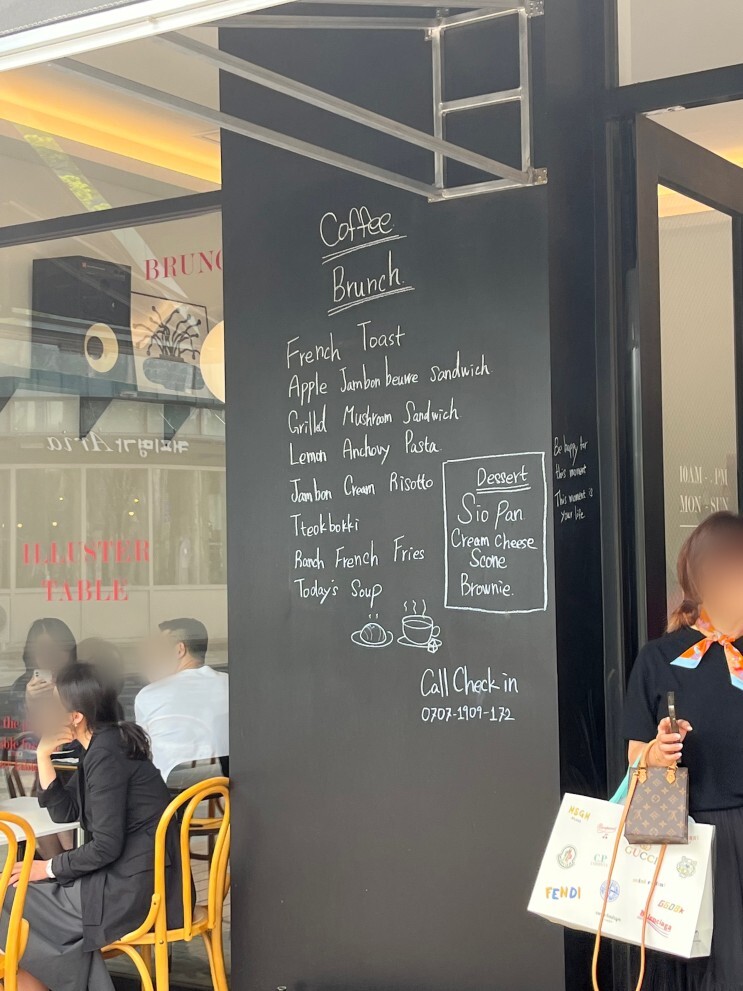 Coffee
Brunch.
French Toast
Apple Jambon beurre Sandwich
Grilled Mushroom Sandwich
Lemon Anchovy Pasta
Jambon Cream Risotto
Tteokbokki
Ranch French Fries
Today's Soup
Dessert
Sio Pan
Cream Cheese
Scone
Brownie.
Call Check in
0707-1909-172
Be happy for
this moment
This moment is
your life
BRUNC
Aria
ILLUSTER
TABLE
the
10AM - PM
MON - SUN
GUCCI
FENDI
CP